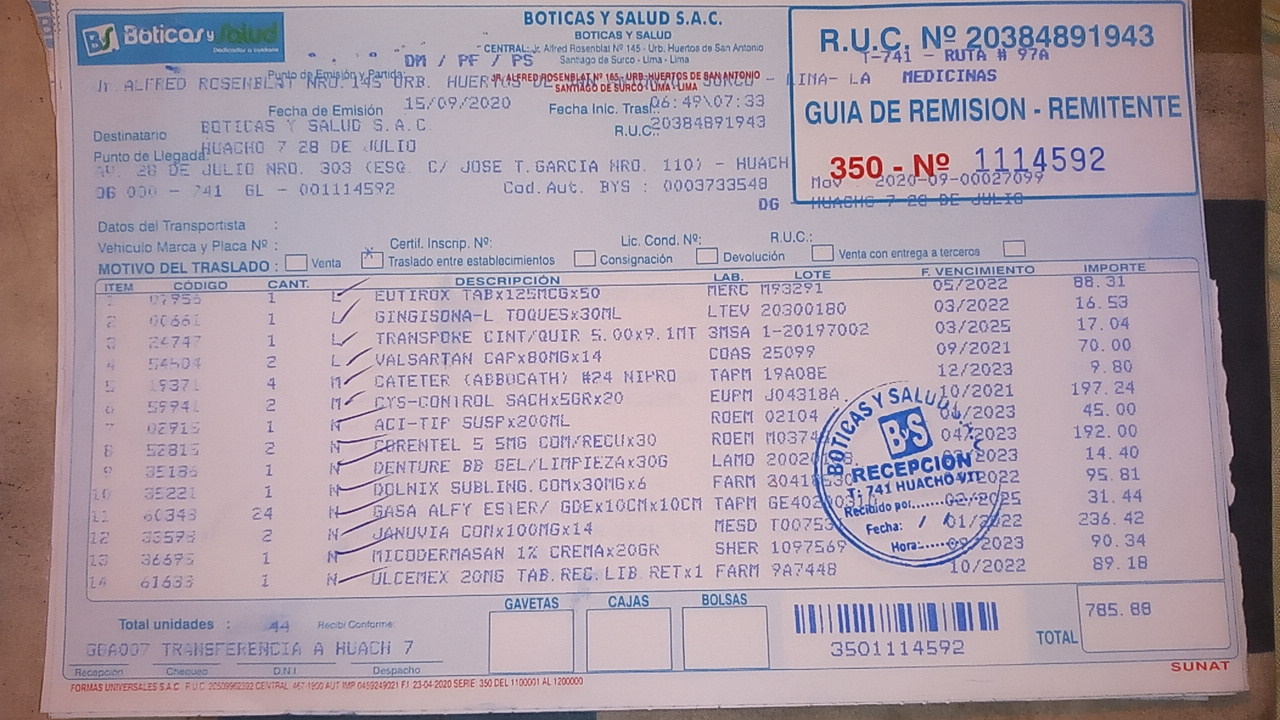 BOTICAS Y SALUD S.A.C.
BS Boticas y Salud
BOTICAS Y SALUD
R.U.C. Nº 20384891943
CENTRAL: Jr. Alfred Rosenblat Nº 145 - Urb. Huertos de San Antonio
Santiago de Surco - Lima - Lima
DM / PF / PS
T-741 - RUTA # 97A
Punto de Emisión y Partida:
JR. ALFRED ROSENBLAT Nº 165 - URB. HUERTOS DE SAN ANTONIO
SANTIAGO DE SURCO - LIMA - LIMA
Jr ALFRED ROSENBLAT NRO. 145 URB. HUERTOS DE SURCO - LIMA- LA MEDICINAS
GUIA DE REMISION - REMITENTE
Fecha de Emisión 15/09/2020 Fecha Inic. Trasl. 06:49\07:33
Destinatario BOTICAS Y SALUD S.A.C. R.U.C.: 20384891943
Punto de Llegada: HUACHO 7 28 DE JULIO
350 - Nº 1114592
28 DE JULIO NRO. 303 (ESQ. C/ JOSE T.GARCIA NRO. 110) - HUACH
Mov : 2020-09-00027099
DG 000 - 741 GL - 001114592 Cod.Aut. BYS : 0003733548
DG - HUACHO 7 28 DE JULIO
Datos del Transportista :
Vehiculo Marca y Placa Nº : Certif. Inscrip. Nº: Lic. Cond. Nº: R.U.C.:
MOTIVO DEL TRASLADO : Venta X Traslado entre establecimientos Consignación Devolución Venta con entrega a terceros
ITEM CÓDIGO CANT. DESCRIPCIÓN LAB. LOTE F. VENCIMIENTO IMPORTE
1 07956 1 L EUTIROX TABx125MCGx50 MERC M93291 05/2022 88.31
2 00661 1 L GINGISONA-L TOQUESx30ML LTEV 20300180 03/2022 16.53
3 24747 1 L TRANSPORE CINT/QUIR 5.00x9.1MT 3MSA 1-20197002 03/2025 17.04
4 54504 2 L VALSARTAN CAPx80MGx14 COAS 25099 09/2021 70.00
5 19371 4 M CATETER (ABBOCATH) #24 NIPRO TAPM 19A08E 12/2023 9.80
6 59941 2 M CYS-CONTROL SACHx5GRx20 EUPM J04318A 10/2021 197.24
7 02915 1 N ACI-TIP SUSPx200ML ROEM 02104 /2023 45.00
8 52815 2 N CORENTEL 5 5MG COM/RECUx30 ROEM 04/2023 192.00
9 35186 1 N DENTURE BB GEL/LIMPIEZAx30G LAMO /2023 14.40
10 35221 1 N DOLNIX SUBLING.COMx30MGx6 FARM /2022 95.81
11 60348 24 N GASA ALFY GDEx10CMx10CM TAPM 02/2025 31.44
12 33598 2 N JANUVIA COMx100MGx14 MESD 01/2022 236.42
13 36695 1 N MICODERMASAN 1% CREMAx20GR SHER 1097569 09/2023 90.34
14 61633 1 N ULCEMEX 20MG TAB.REC.LIB RETx1 FARM 9A7448 10/2022 89.18
BOTICAS Y SALUD
BS
RECEPCION
T: 741 HUACHO VII
Recibido por
Fecha: / /
Hora:
GAVETAS CAJAS BOLSAS
Total unidades : 44 Recibi Conforme:
785.88
TOTAL
GBA007 TRANSFERENCIA A HUACH 7
3501114592
Recepción Chequeo D.N.I. Despacho
SUNAT
FORMAS UNIVERSALES S.A.C. R.U.C. 20509962302 CENTRAL: 467-1900 AUT IMP 0459249021 F.I. 23-04-2020 SERIE: 350 DEL 1100001 AL 1200000